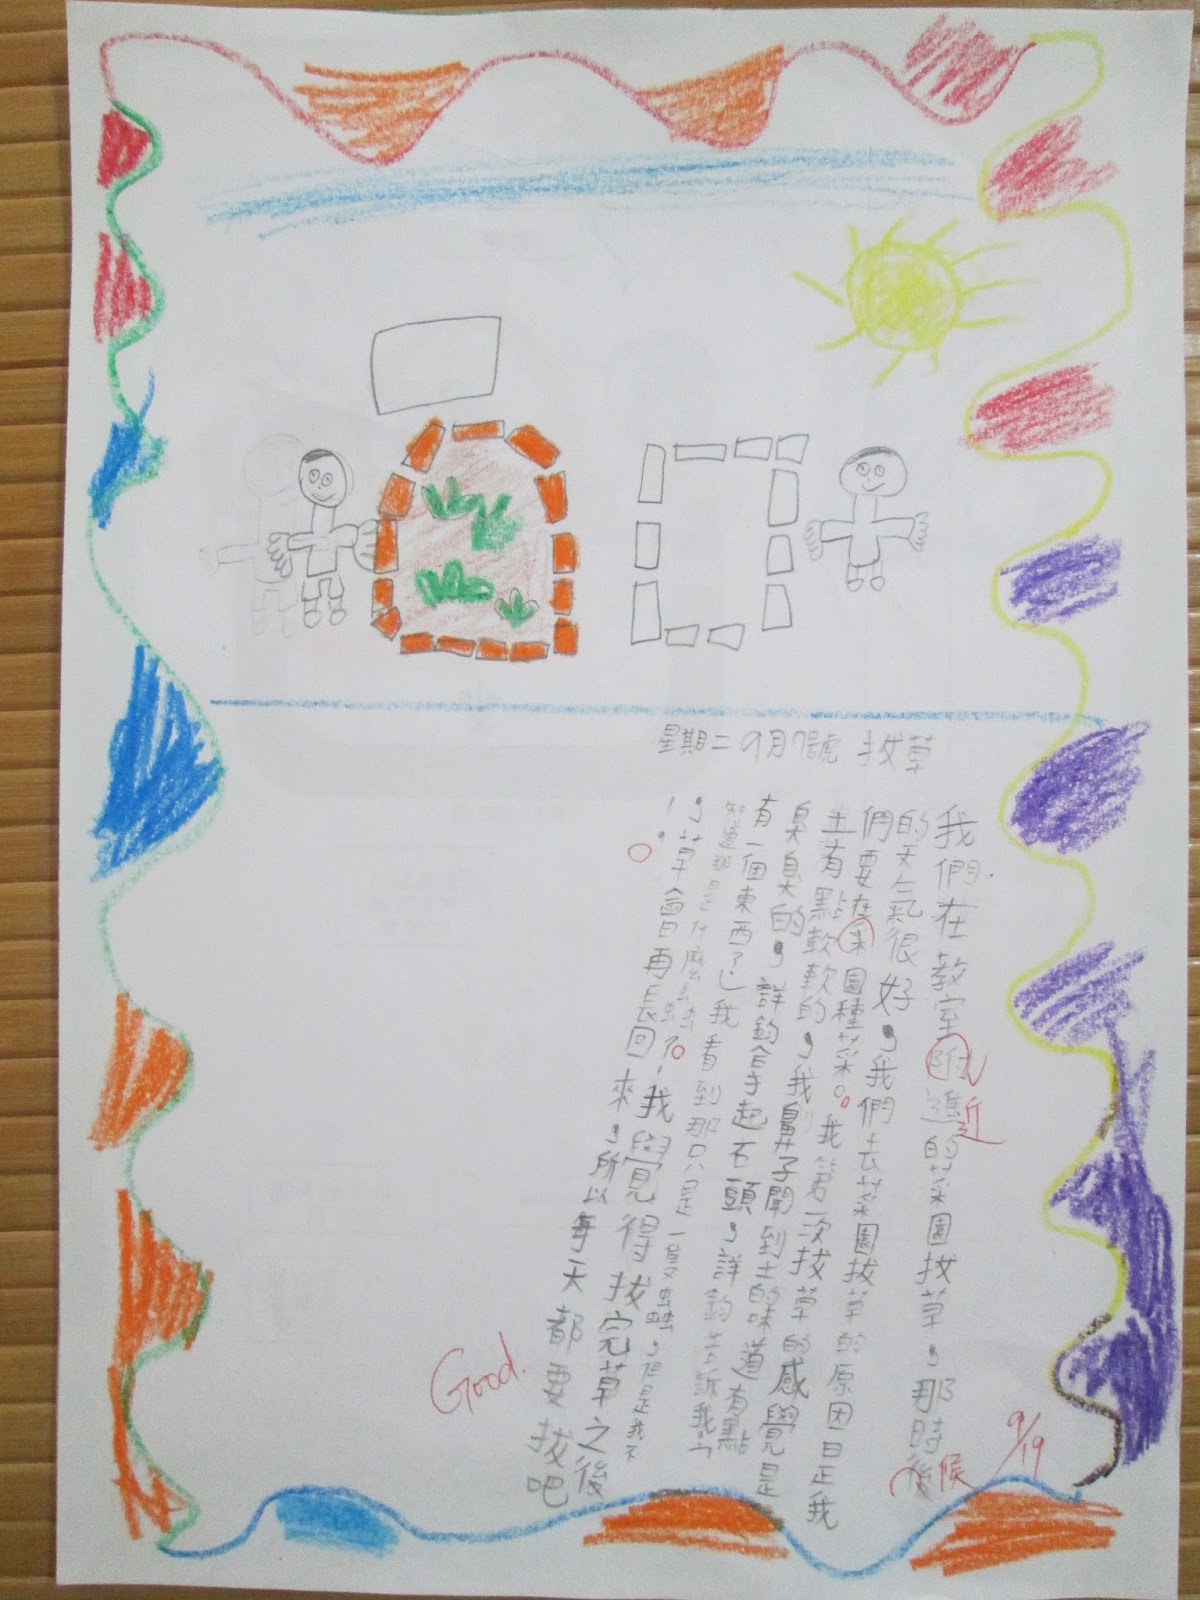 星期二 9月7號 拔草
我們在教室附進的菜園拔草，那時後
的天氣很好，我們去菜園拔草的原因是我
們要在菜園種菜。我第一次拔草的感覺是
土有點軟軟的，我鼻子聞到土的味道有點
臭臭的，詳鈞拿起石頭，詳鈞告訴我：「
有一個東西了」我看到那只是一隻蟲，但是我不
知道那是什麼蟲。我覺得拔完草之後
，草會再長回來，所以每天都要拔吧
！
近
候
9/19
Good.